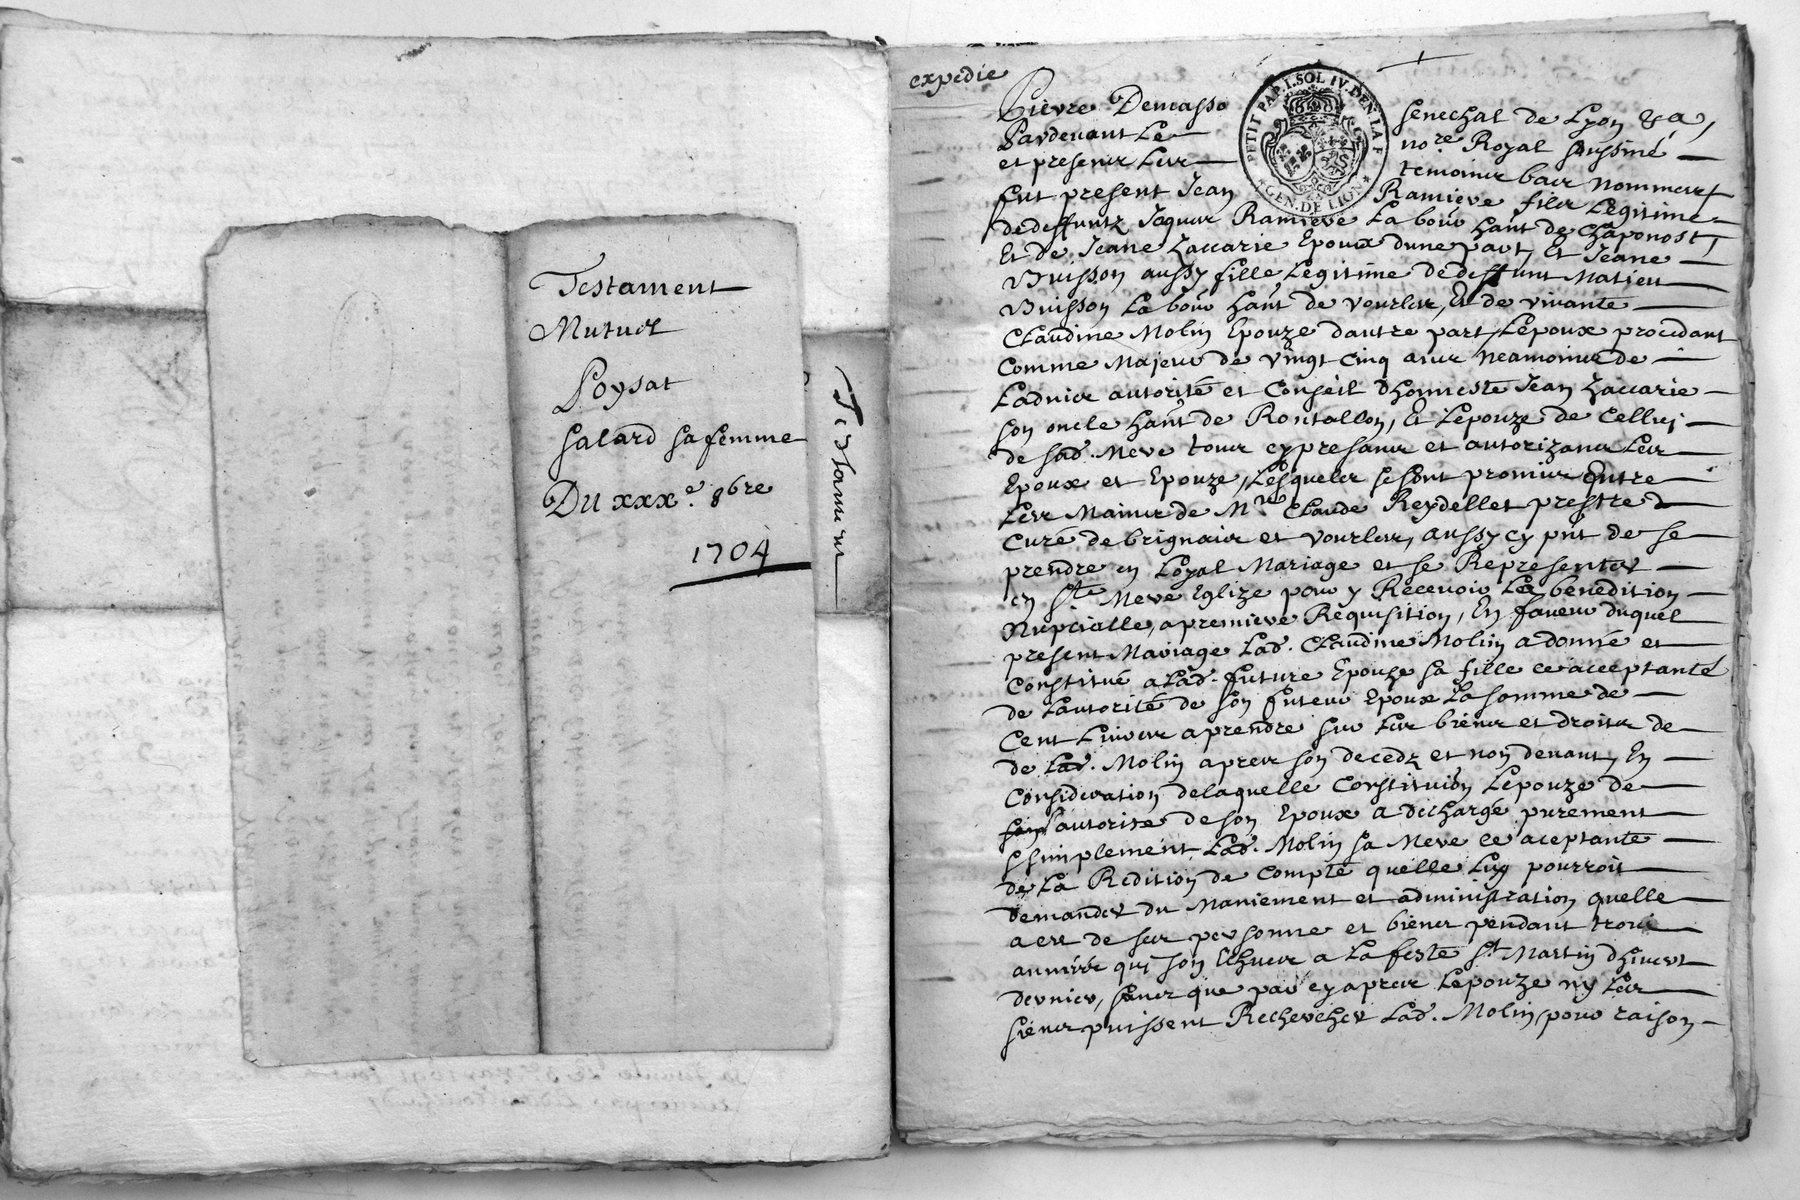 Testament
Mutuel
Poysat
Salard sa femme
Du xxxe. 8bre
1704
Testament
expedie
PETIT PAP. I. SOL IV. DEN. LA F.
GEN. DE LION
Pierre Demasso senechal de Lyon &a,
Pardevant Le no.re Royal soussiné
et presens Les temoins bas nommez
fut present Jean Ramiere fils Legitime
de deffuntz Jaques Ramiere La bour hant de Chaponost
Et de Jeane Zaccarie Epoux dune part, Et Jeane
Buisson aussy fille Legitime de deffunt Matieu
Buisson La bour hant de vourles, Et de vivante
Claudine Molin Epouze dautre part, Lepoux procedant
Comme Majeur de vingt cinq ans neamoins de
Ladvice autorité et Conseil dhonneste Jean Zaccarie
son oncle hant de Rontallon, Et Lepouze de Celluy
de sad. Mere tous cy presans et autorizans Les
Epoux et Epouze, Lesquels se sont promis Entre
Les Mains de Mre Claude Reydellet prestre
Curé de brignais et vourles, aussy cy pnt de se
prendre en Loyal Mariage et se Representer
en Ste Mere Eglize pour y Recevoir La benedition
Nupcialle, a premiere Requisition, En faveur duquel
present Mariage Lad. Claudine Molin a donné et
Constitué a Lad. future Epouze sa fille ce acceptante
de Lautorité de son futeur Epoux La somme de
Cent Livres a prendre sur Les biens et droits de
de Lad. Molin apres son decedz et non devant, En
Consideration delaquelle Constituion Lepouze de
Lautorite de son Epoux a déchargé purement
& simplement Lad. Molin sa Mere ce aceptante
de La Redition de Compte quelle Luy pourroit
demander du Maniement et administration quelle
a ere de ses personne et biens pendant trois
années qui son Echues a La feste St Martin dhivert
dernier, sans que par cy apres Lepouze ny Les
siens puissent Rechercher Lad. Molin pour raison